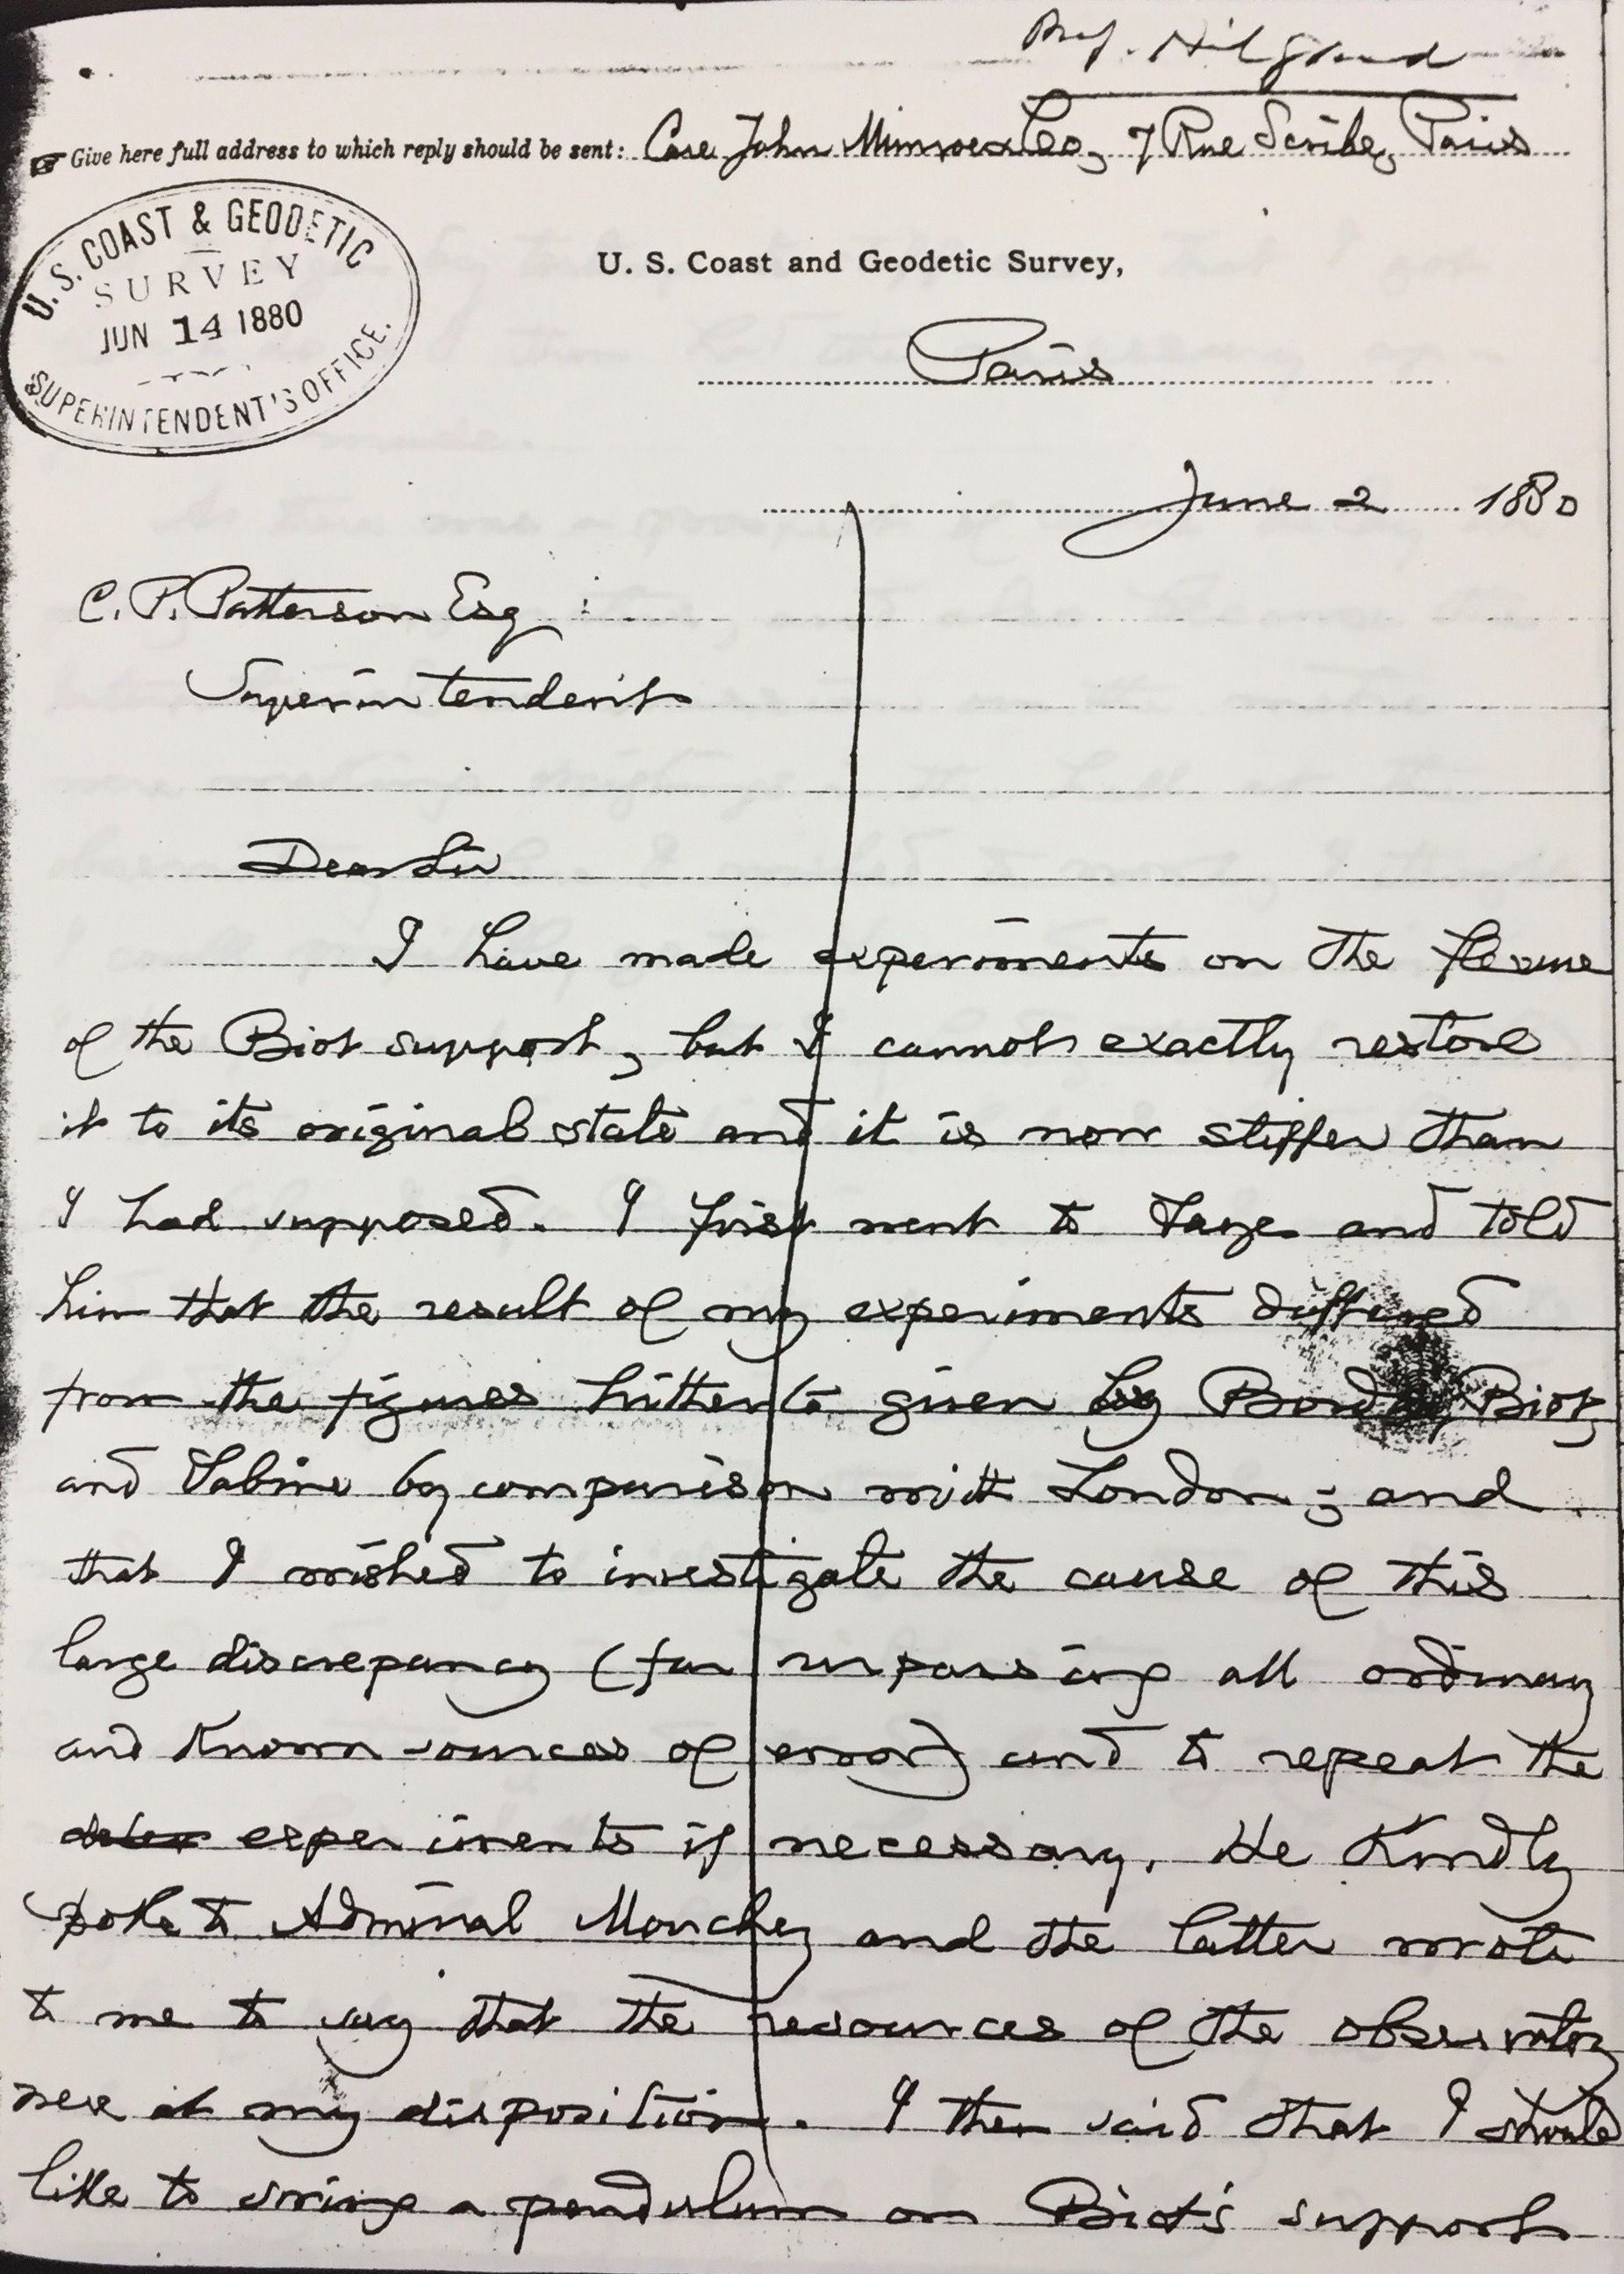 Prof. Hilgard
Give here full address to which reply should be sent: Care John Munroe & Co, 7 Rue Scribe, Paris
U. S. COAST & GEODETIC
SURVEY
JUN 14 1880
SUPERINTENDENT'S OFFICE.
U. S. Coast and Geodetic Survey,
Paris
June 2 1880
C. P. Patterson Esq
Superintendent
Dear Sir
I have made experiments on the flexure
of the Biot support, but I cannot exactly restore
it to its original state and it is now stiffer than
I had supposed. I first went to Faye and told
him that the result of my experiments differed
from the figures hitherto given by Borda, Biot,
and Sabine by comparison with London; and
that I wished to investigate the cause of this
large discrepancy (far surpassing all ordinary
and known sources of error) and to repeat the
experiments if necessary. He kindly
spoke to Admiral Mouchez and the latter wrote
to me to say that the resources of the observatory
were at my disposition. I then said that I should
like to swing a pendulum on Biot's support